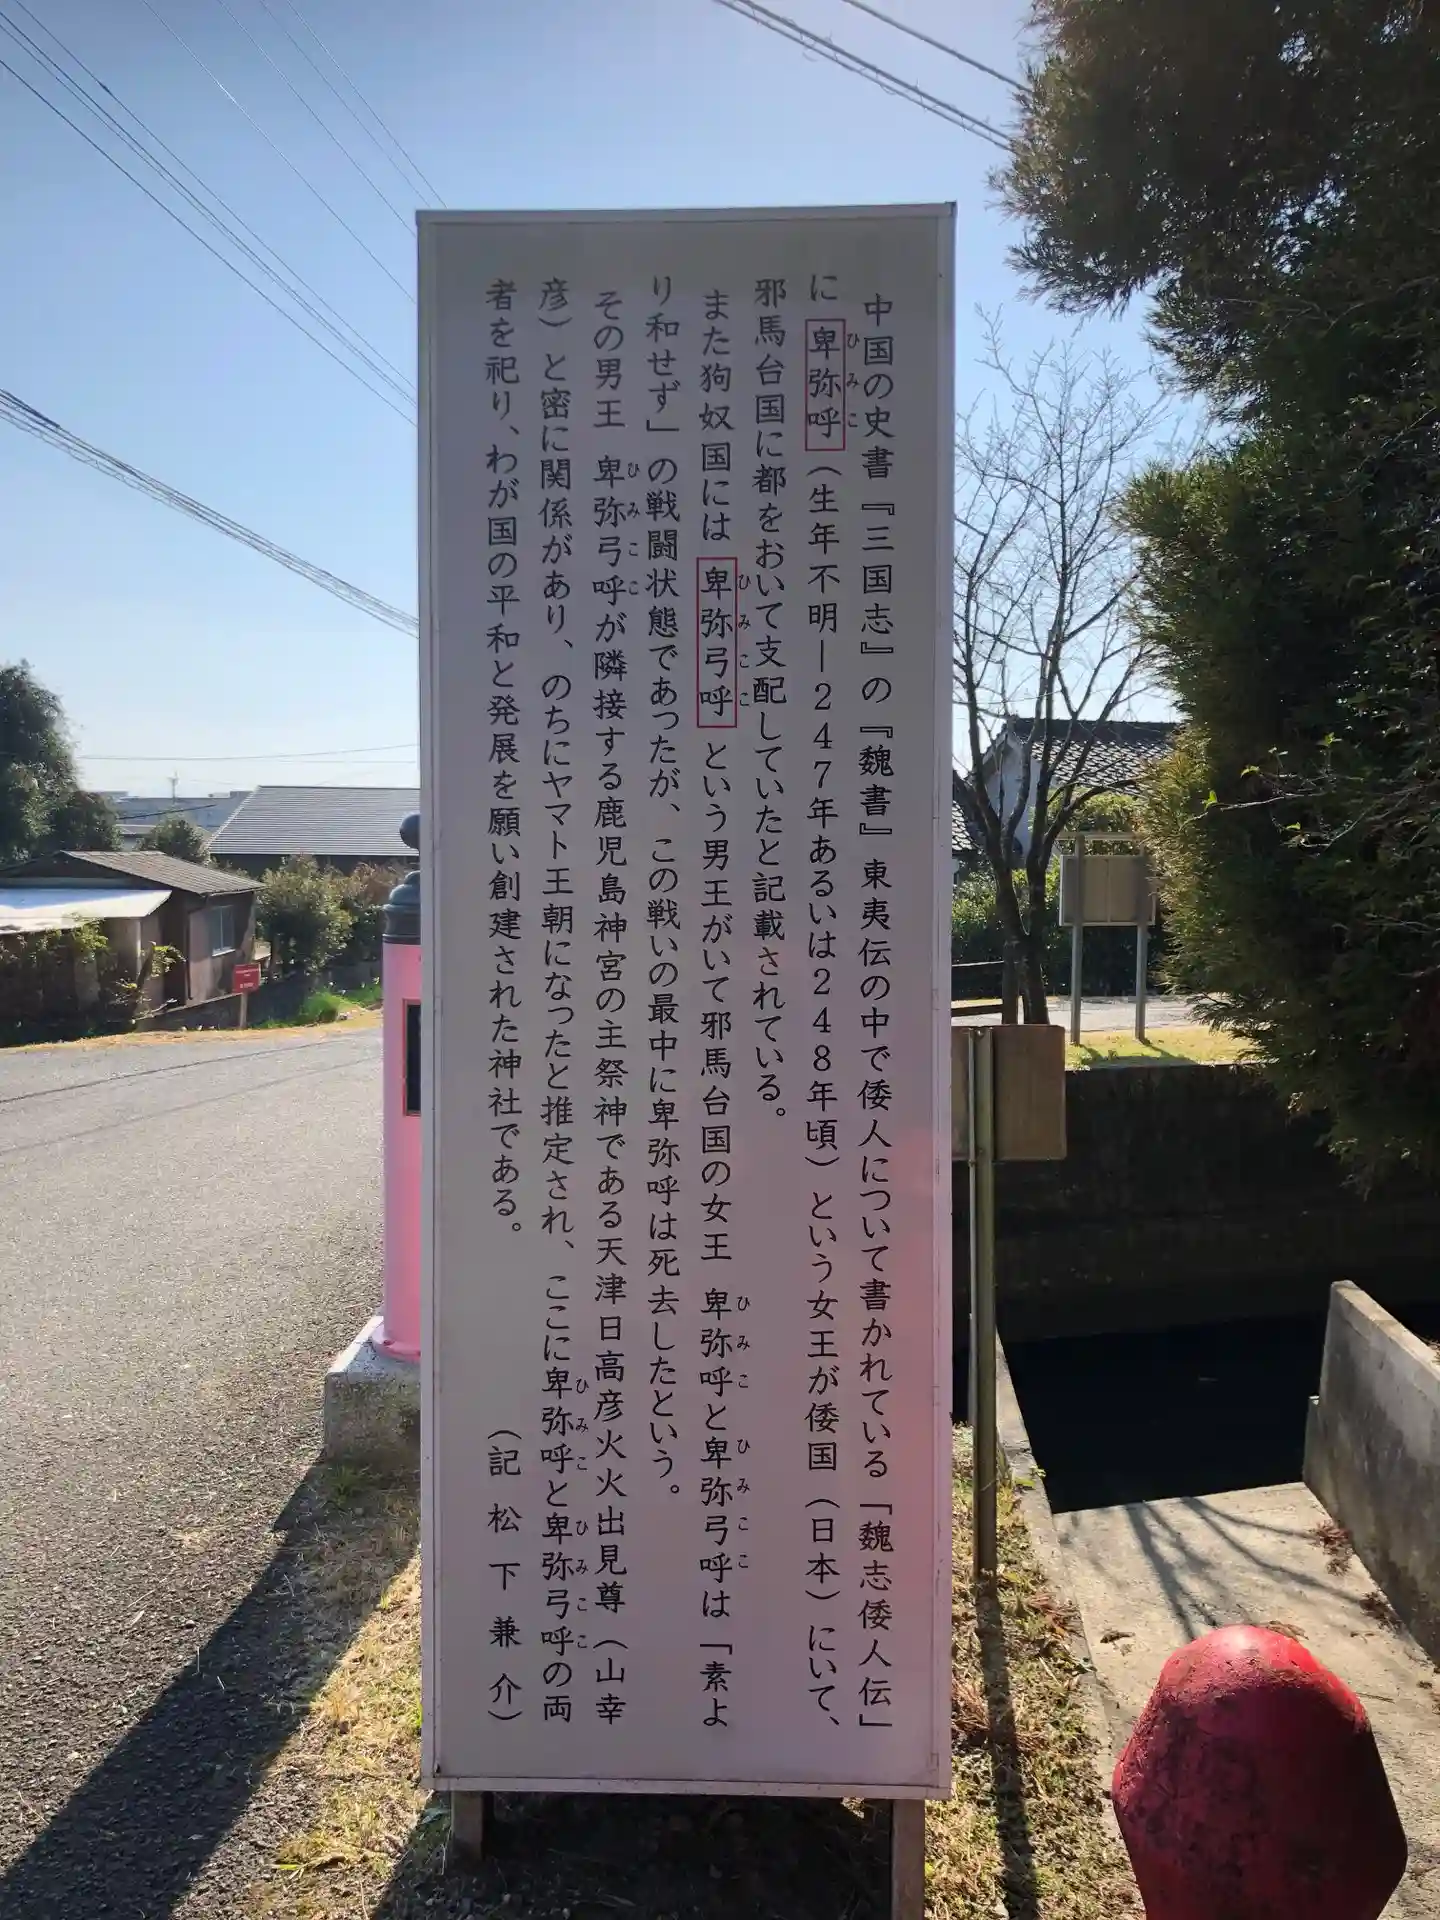 中国の史書『三国志』の『魏書』東夷伝の中で倭人について書かれている「魏志倭人伝」
に卑弥呼(生年不明ー247年あるいは248年頃)という女王が倭国(日本)にいて、
ひみこ
邪馬台国に都をおいて支配していたと記載されている。
また狗奴国には卑弥弓呼という男王がいて邪馬台国の女王 卑弥呼と卑弥弓呼は「素よ
ひみここ ひみこ ひみここ
り和せず」の戦闘状態であったが、この戦いの最中に卑弥呼は死去したという。
その男王 卑弥弓呼が隣接する鹿児島神宮の主祭神である天津日高彦火火出見尊(山幸
ひみここ
彦)と密に関係があり、のちにヤマト王朝になったと推定され、ここに卑弥呼と卑弥弓呼の両
ひみこ ひみここ
者を祀り、わが国の平和と発展を願い創建された神社である。
(記 松下兼介)